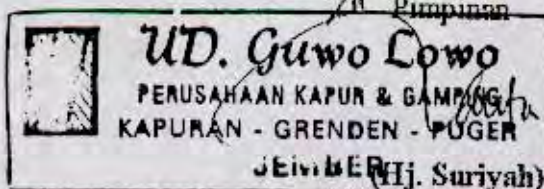 Pimpinan
UD. Guwo Lowo
PERUSAHAAN KAPUR & GAMPING
KAPURAN - GRENDEN - PUGER
JEMBER
(Hj. Suriyah)